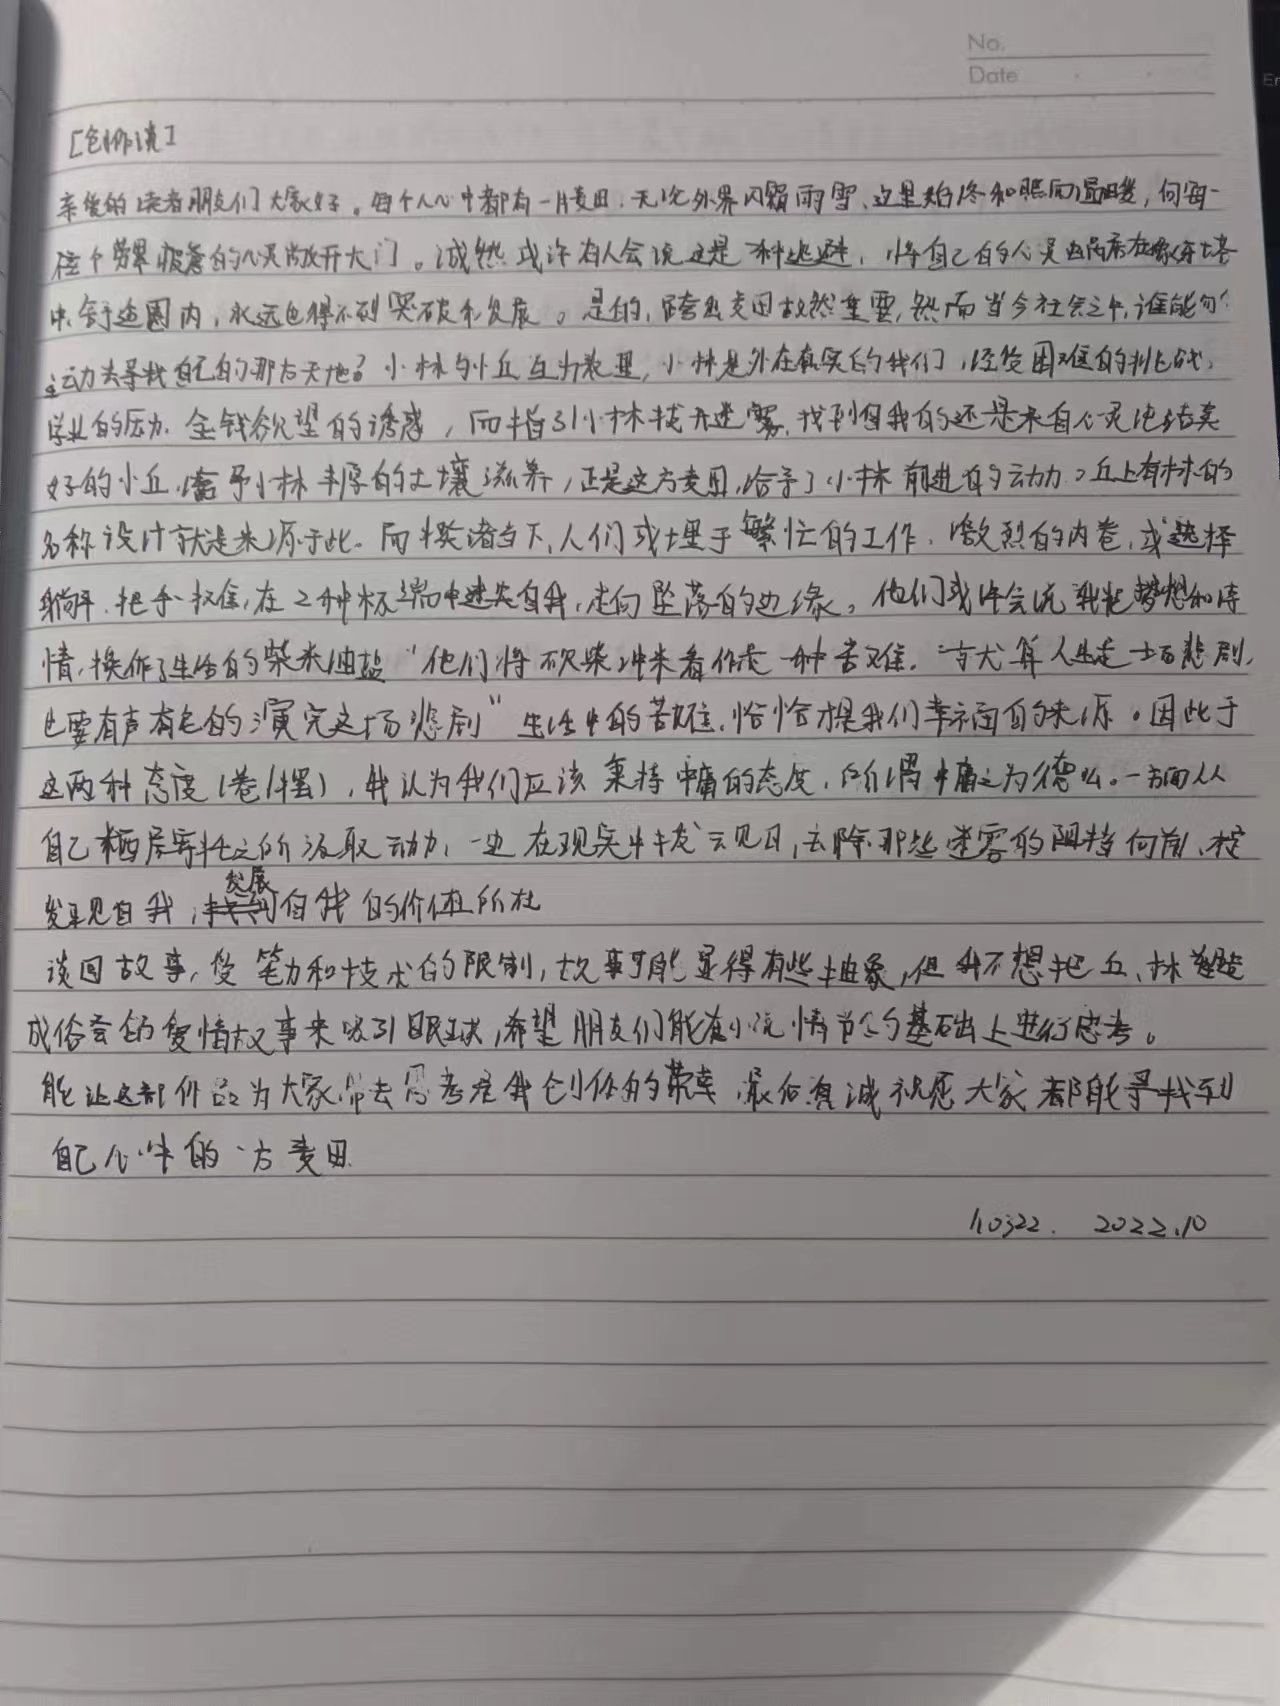 No.
Date
[创作谈]
亲爱的读者朋友们大家好。每个人心中都有一片麦田,无论外界风霜雨雪,这里始终和熙而温暖,向每一
位个劳累疲惫的心灵敞开大门。诚然或许有人会说这是一种逃避,将自己的心灵 在象牙塔
中,舒适圈内,永远也得不到突破和发展。是的,跨出麦田故然重要,然而当今社会之中,谁能
动力去寻找自己的那方天地?小林与小丘互为表里,小林是外在真实的我们,经受困难的挑战,
学业的压力、金钱欲望的诱惑,而指引小林拨开迷雾,找到自我的还是来自心灵纯洁美
好的小丘,给予小林丰厚的土壤滋养,正是这方麦田,给予了小林前进的动力。丘上有林的
名称设计就是来源于此。而摸诸当下,人们或埋于繁忙的工作、激烈的内卷,或选择
躺平、把手一 ,在2种极端中迷失自我,走向坠落的边缘。他们或许会说我把梦想和诗
情,换作了生活的柴米油盐"他们将砍柴冲米看作是一种苦难。"就算人生是一场悲剧,
也要有声有色的演完这场悲剧"生活中的苦难,恰恰才是我们幸福的来源。因此于
这两种态度(卷/摆),我认为我们应该秉持中庸的态度,所谓中庸之为德么。一方面从
自己栖居寄托之所汲取动力,一边在现实中拨云见日,去除那些迷雾的阻挡向前,
发现自我,发展自我的价值所在
谈回故事,受笔力和技术的限制,故事可能显得有些抽象,但我不想把丘、林塑造
成俗套的爱情故事来吸引眼球,希望朋友们能在小说情节的基础上进行思考。
能让这部作品为大家带去思考是我创作的荣幸,最后真诚祝愿大家都能寻找到
自己心中的一方麦田
h0322. 2022.10